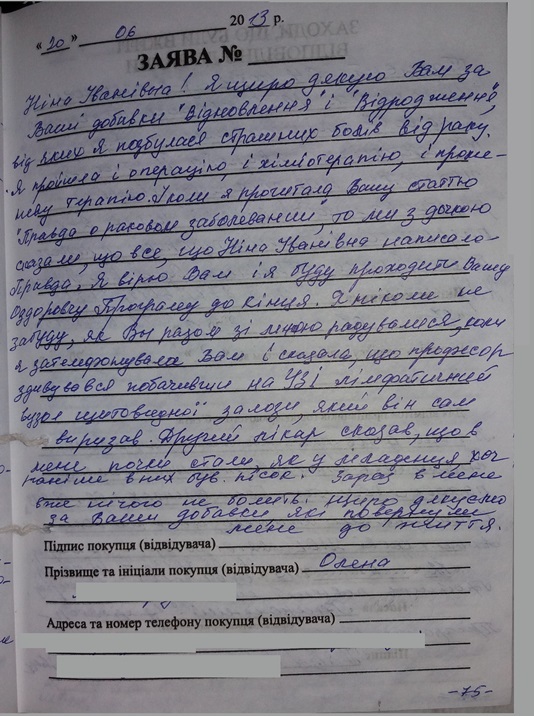 "20" 06 2013 р.
ЗАЯВА №
Ніна Іванівна! Я щиро дякую Вам за
Ваші добавки "Відновлення" і "Відродження",
від яких я позбулася страшних болів від раку.
Я пройшла і операцію, і хіміотерапію, і проме-
неву терапію. І коли я прочитала Вашу статтю
"Правда о раковом заболевании", то ми з дочкою
сказали, що все, що Ніна Іванівна написала-
Правда. Я вірю Вам і я буду проходити Вашу
Оздоровчу Програму до кінця. Я ніколи не
забуду, як Ви разом зі мною радувалися, коли
я зателефонувала Вам і сказала, що професор
здивувався побачивши на УЗІ лімфатичний
вузол щитовидної залози, який він сам
вирізав. Другий лікар сказав, що в
мене почки стали, як у младенця, хоч
раніше в них був пісок. Зараз в мене
вже нічого не болить. Щиро дякуємо
за Ваши добавки які повернули
мене до життя.
Підпис покупця (відвідувача)
Прізвище та ініціали покупця (відвідувача) Олена
Адреса та номер телефону покупця (відвідувача)
-75-